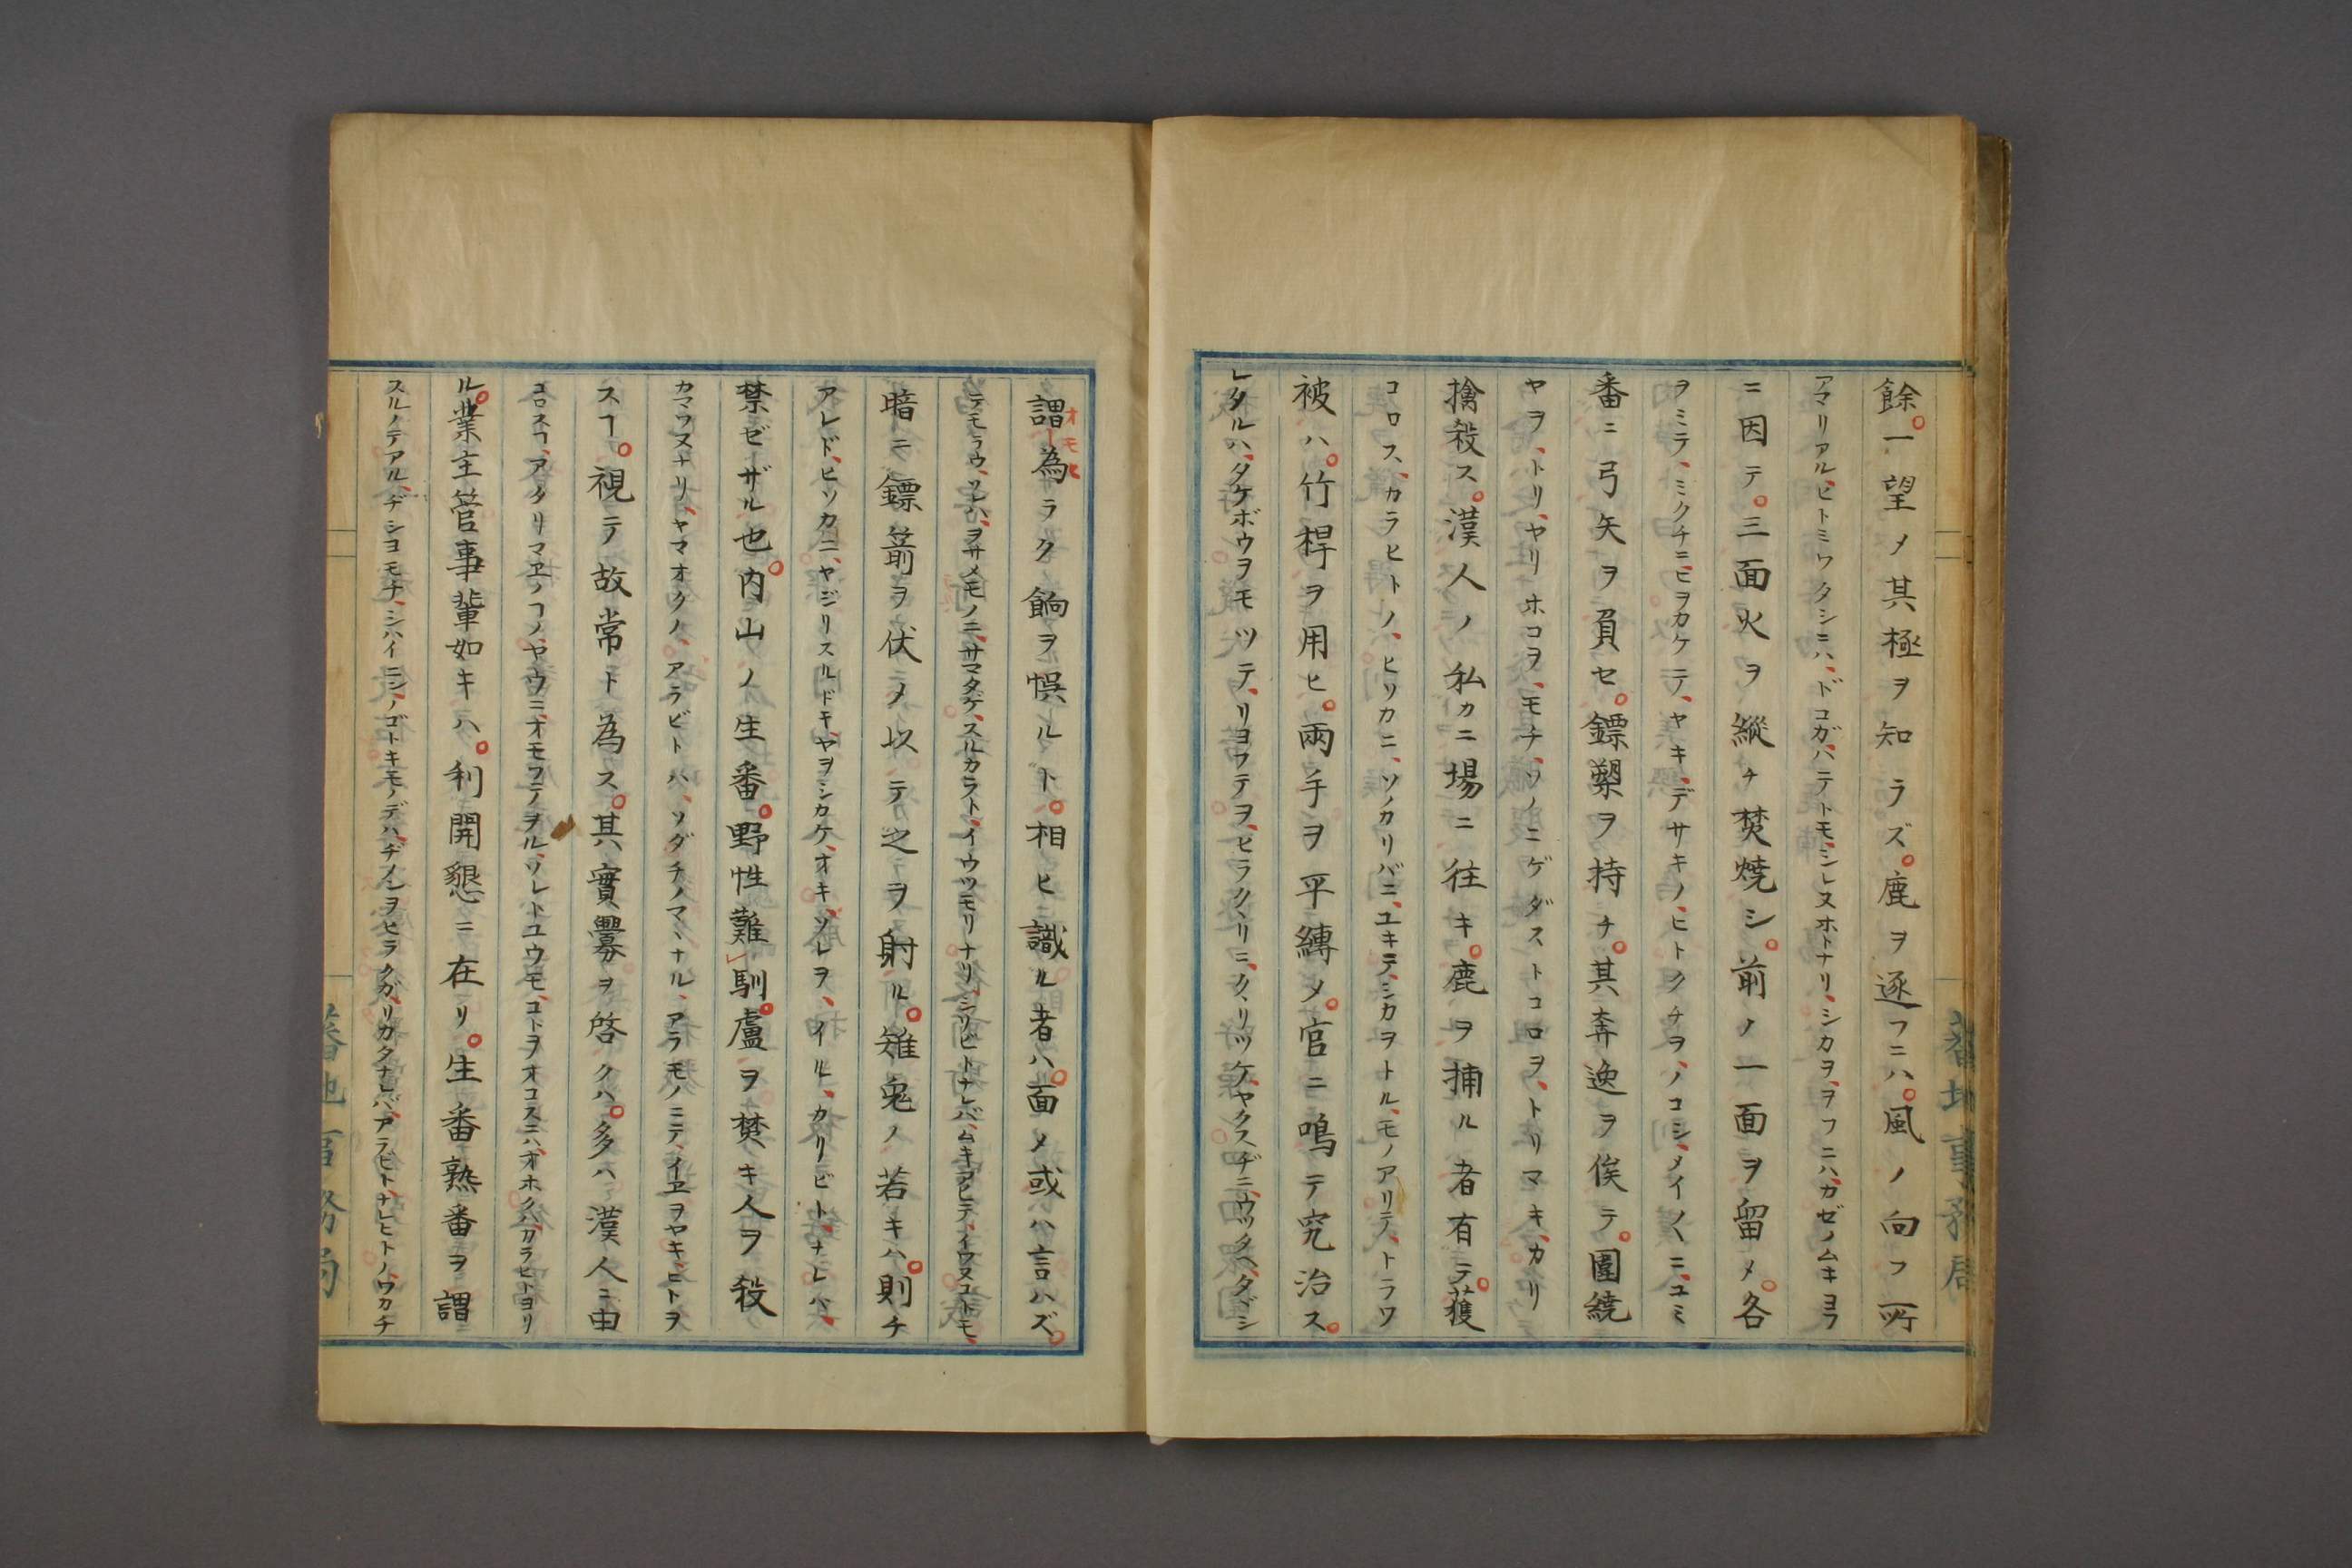 餘。一望メ其極ヲ知ラズ。鹿ヲ逐フニハ。風ノ向フ所
アマリアル、ヒトミワタシニハ、ドコガ、ハテトモ、シレヌホトナリ、シカヲ、ヲフニハ、カゼノムキヨフ
ニ因テ。三面火ヲ縱チ焚燒シ。前ノ一面ヲ留メ。各
ヲミテ、ミクチニ、ヒヲカケテ、ヤキ、デサキノ、ヒトクチヲ、ノコシ、メイ〱ニ、ユミ
番ニ弓矢ヲ負セ。鏢槊ヲ持チ。其奔逸ヲ俟テ。圍繞
ヤヲ、トリ、ヤリホコヲ、モチ、ソノニゲダストコロヲ、トリマキ、カリ
擒殺ス。漢人ノ私カニ場ニ往キ。鹿ヲ捕ル者有テ。獲
コロス、カラヒトノ、ヒソカニ、ソノカリバニ、ユキテ、シカヲトル、モノアリテ、トラワ
被ハ。竹桿ヲ用ヒ。兩手ヲ平縛メ。官ニ鳴テ究治ス。
レタルハ、タケボウヲモツテ、リヨフテヲ、ヒラクヽリニ、クヽリツケ、ヤクスヂニ、ウツタヘ、タゞシ
謂為ラク餉ヲ悞ルト。相ヒ識ル者ハ。面メ或ハ言ハズ。
オモヘ
テモラウ、ソレハ、ヲサメモノニ、サマタゲ、スルカラト、イウツモリナリ、シリビトナレバ、ムキアヒテ、イワヌコトモ、
暗ニ鏢箭ヲ伏メ以テ之ヲ射ル。雉兎ノ若キハ。則チ
アレド、ヒソカニ、ヤジリスルドキ、ヤヲシカケ、オキ、ソレヲ、イル、カリビト、ナレバ、
禁ゼザル也。内山ノ生番。野性難馴。廬ヲ焚キ人ヲ殺
カマワヌナリ、ヤマオクノ、アラビトハ、ソダチノマヽナル、アラモノニテ、イヱヲヤキ、ヒトヲ
スヿ。視テ故常ト為ス。其實釁ヲ啓クハ。多ハ漢人ニ由
コロスヿ、アタリマヱノヿノ、ヤウニ、オモフテヲル、ソレトユウモ、コトヲオコスニハ、オホクハカラヒトヨリ
ル。業主管事輩如キハ。利開懇ニ在リ。生番熟番ヲ謂
スルノデアル、ヂシヨモチ、シハイニンノゴトキモノデハ、ヂメンヲヒラクガ、リカタナレバ、アラヒト、ナレヒトノ、ワカチ